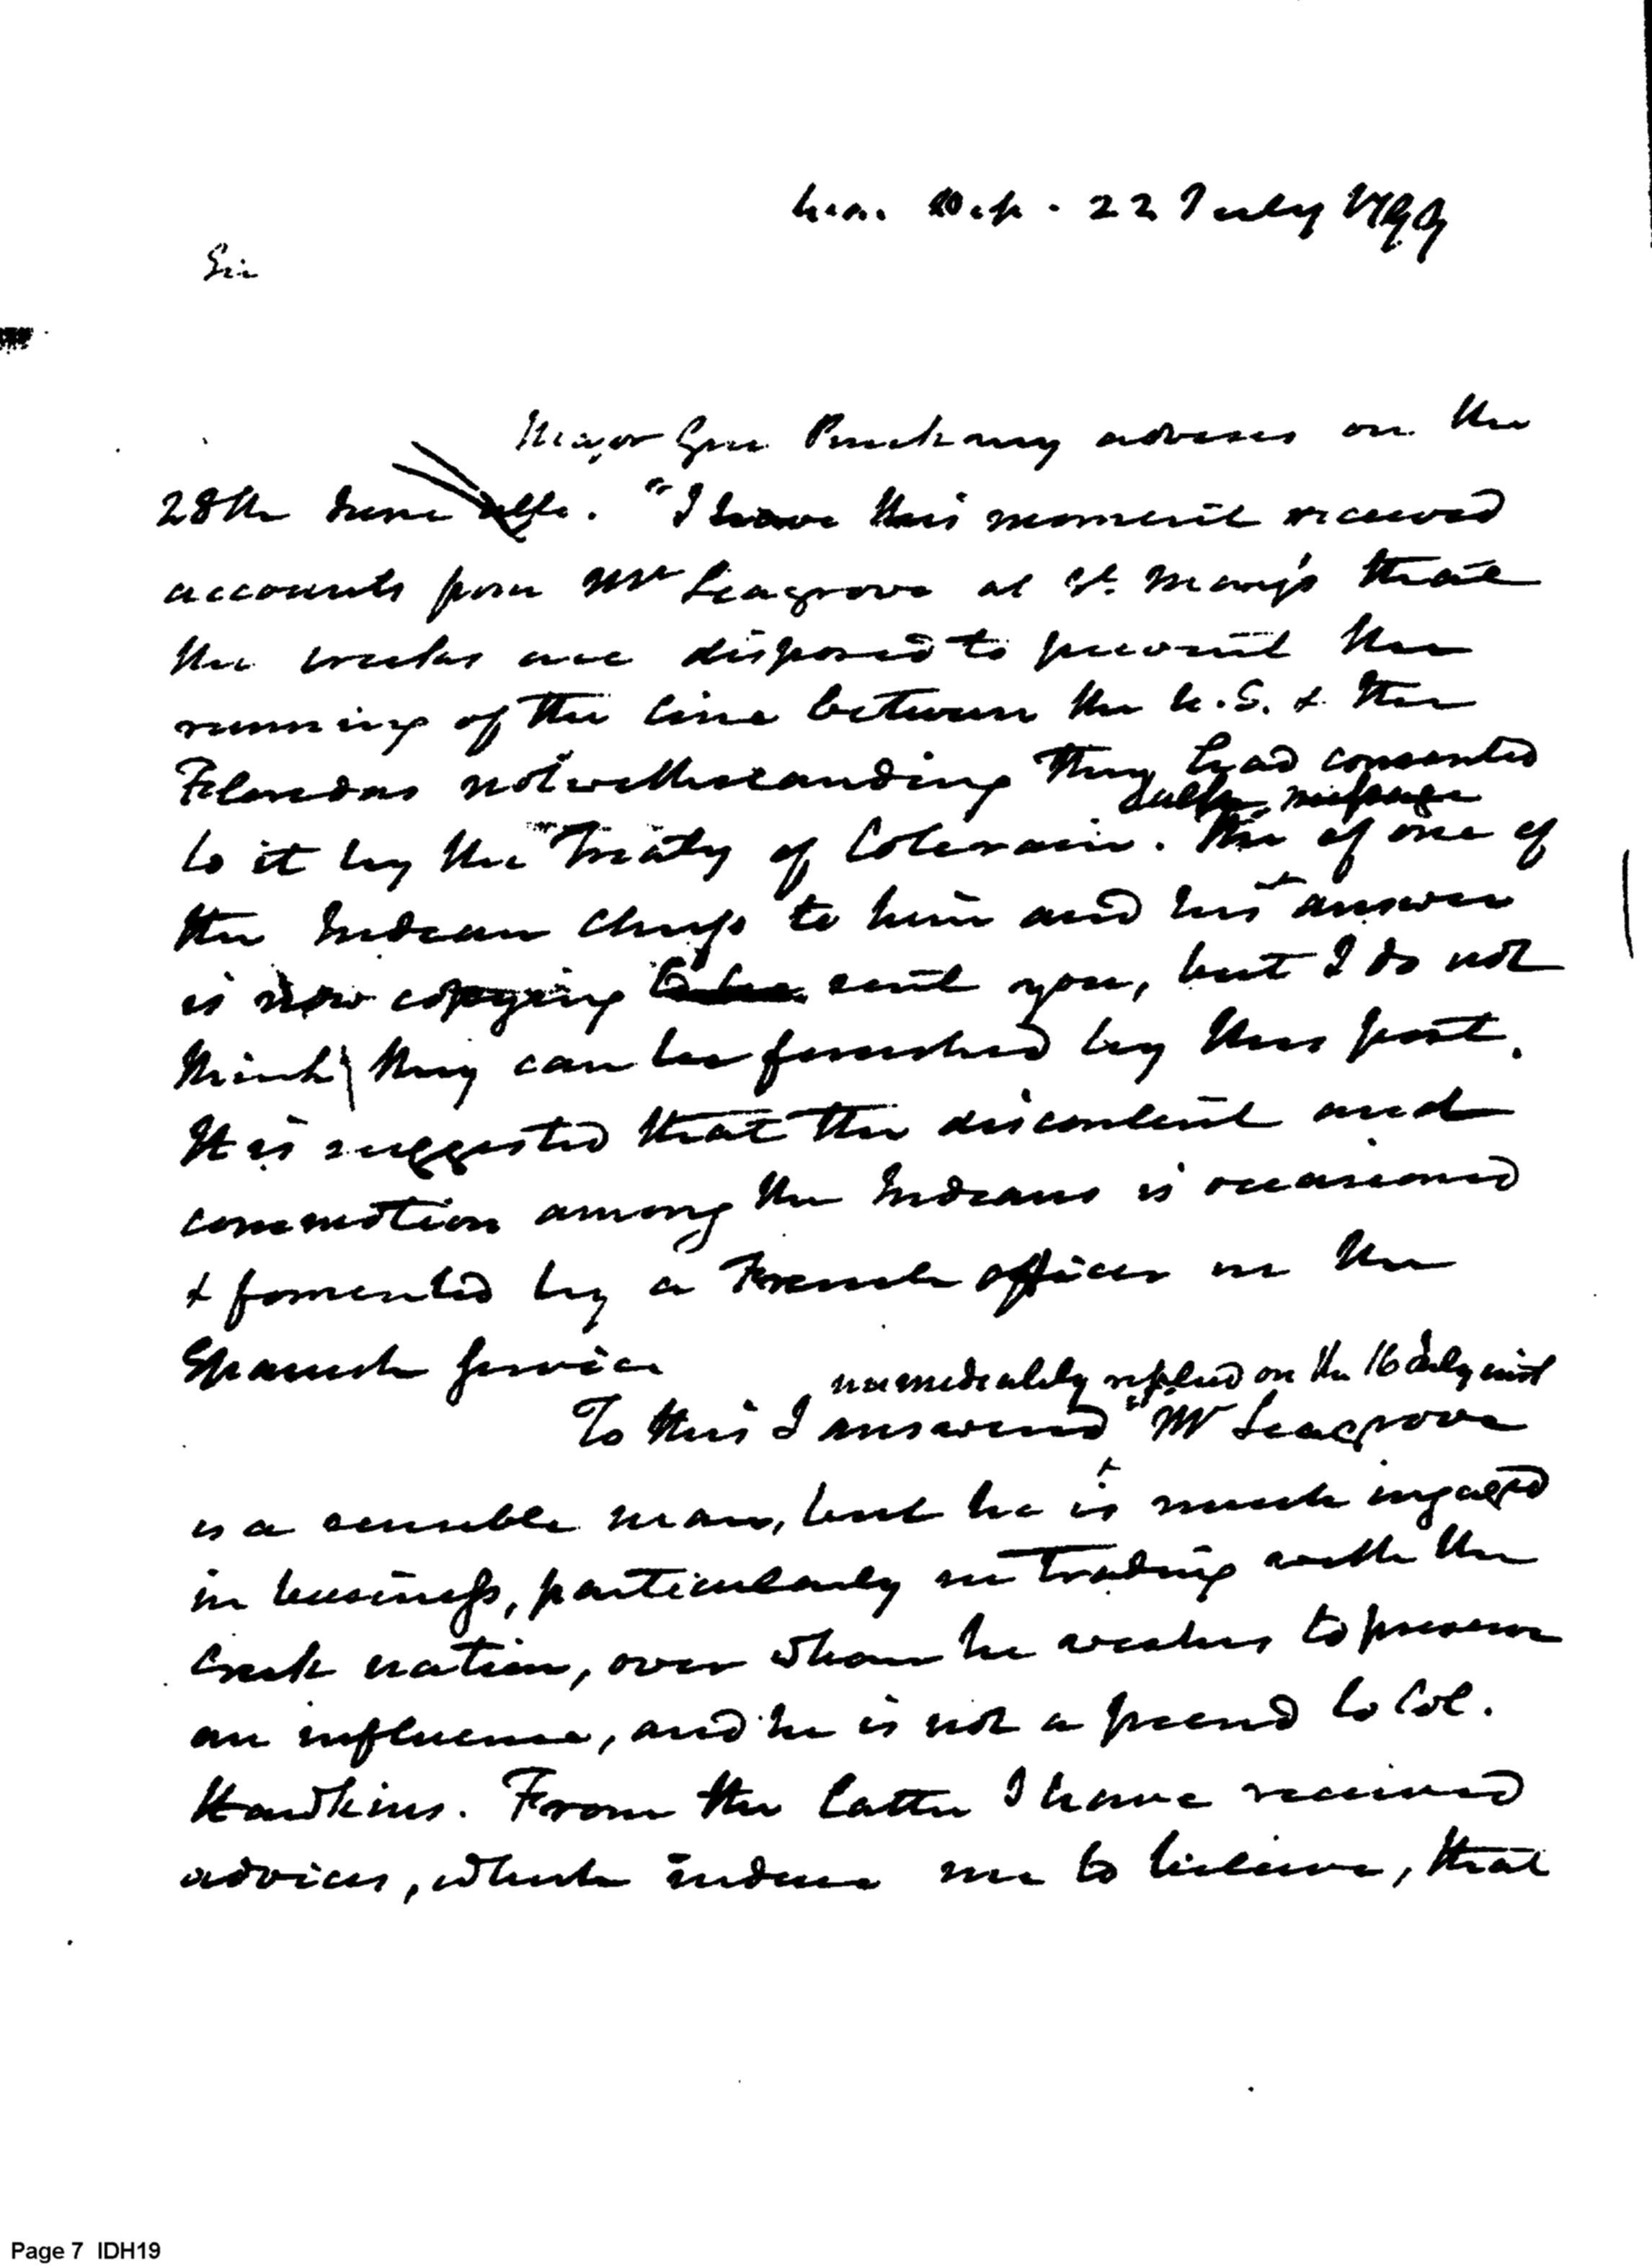 War Dep. 22 July 1799
Sir
Major Gen Pinckney advises on the
28th June. "I have this moment received
accounts from Mr Seagrove at St. Mary's that
the creeks are disposed to prevent the
running of the line between the U.S. & the
Floredas notwithstanding they had consented
talk, message
to it by the Treaty of Colerain. The of one of
the Indian chiefs to him and his answer
is now copying to be sent you, but I do not
think they can be finished by this post.
It is suggested that the discontent and
commotion among the Indians is occasioned
& fomented by a French officer in the
Spanish service
immediately replied on the 16 July inst
To this I answered "Mr Seagrove
is a sensible man, but he is much ingaged
in business, particularly in trading with the
Creek nation, over whom he wishes to preserve
an influence, and he is not a friend to Col.
Hawkins. From the latter I have received
advices, which induce me to believe, that
Page 7 IDH19